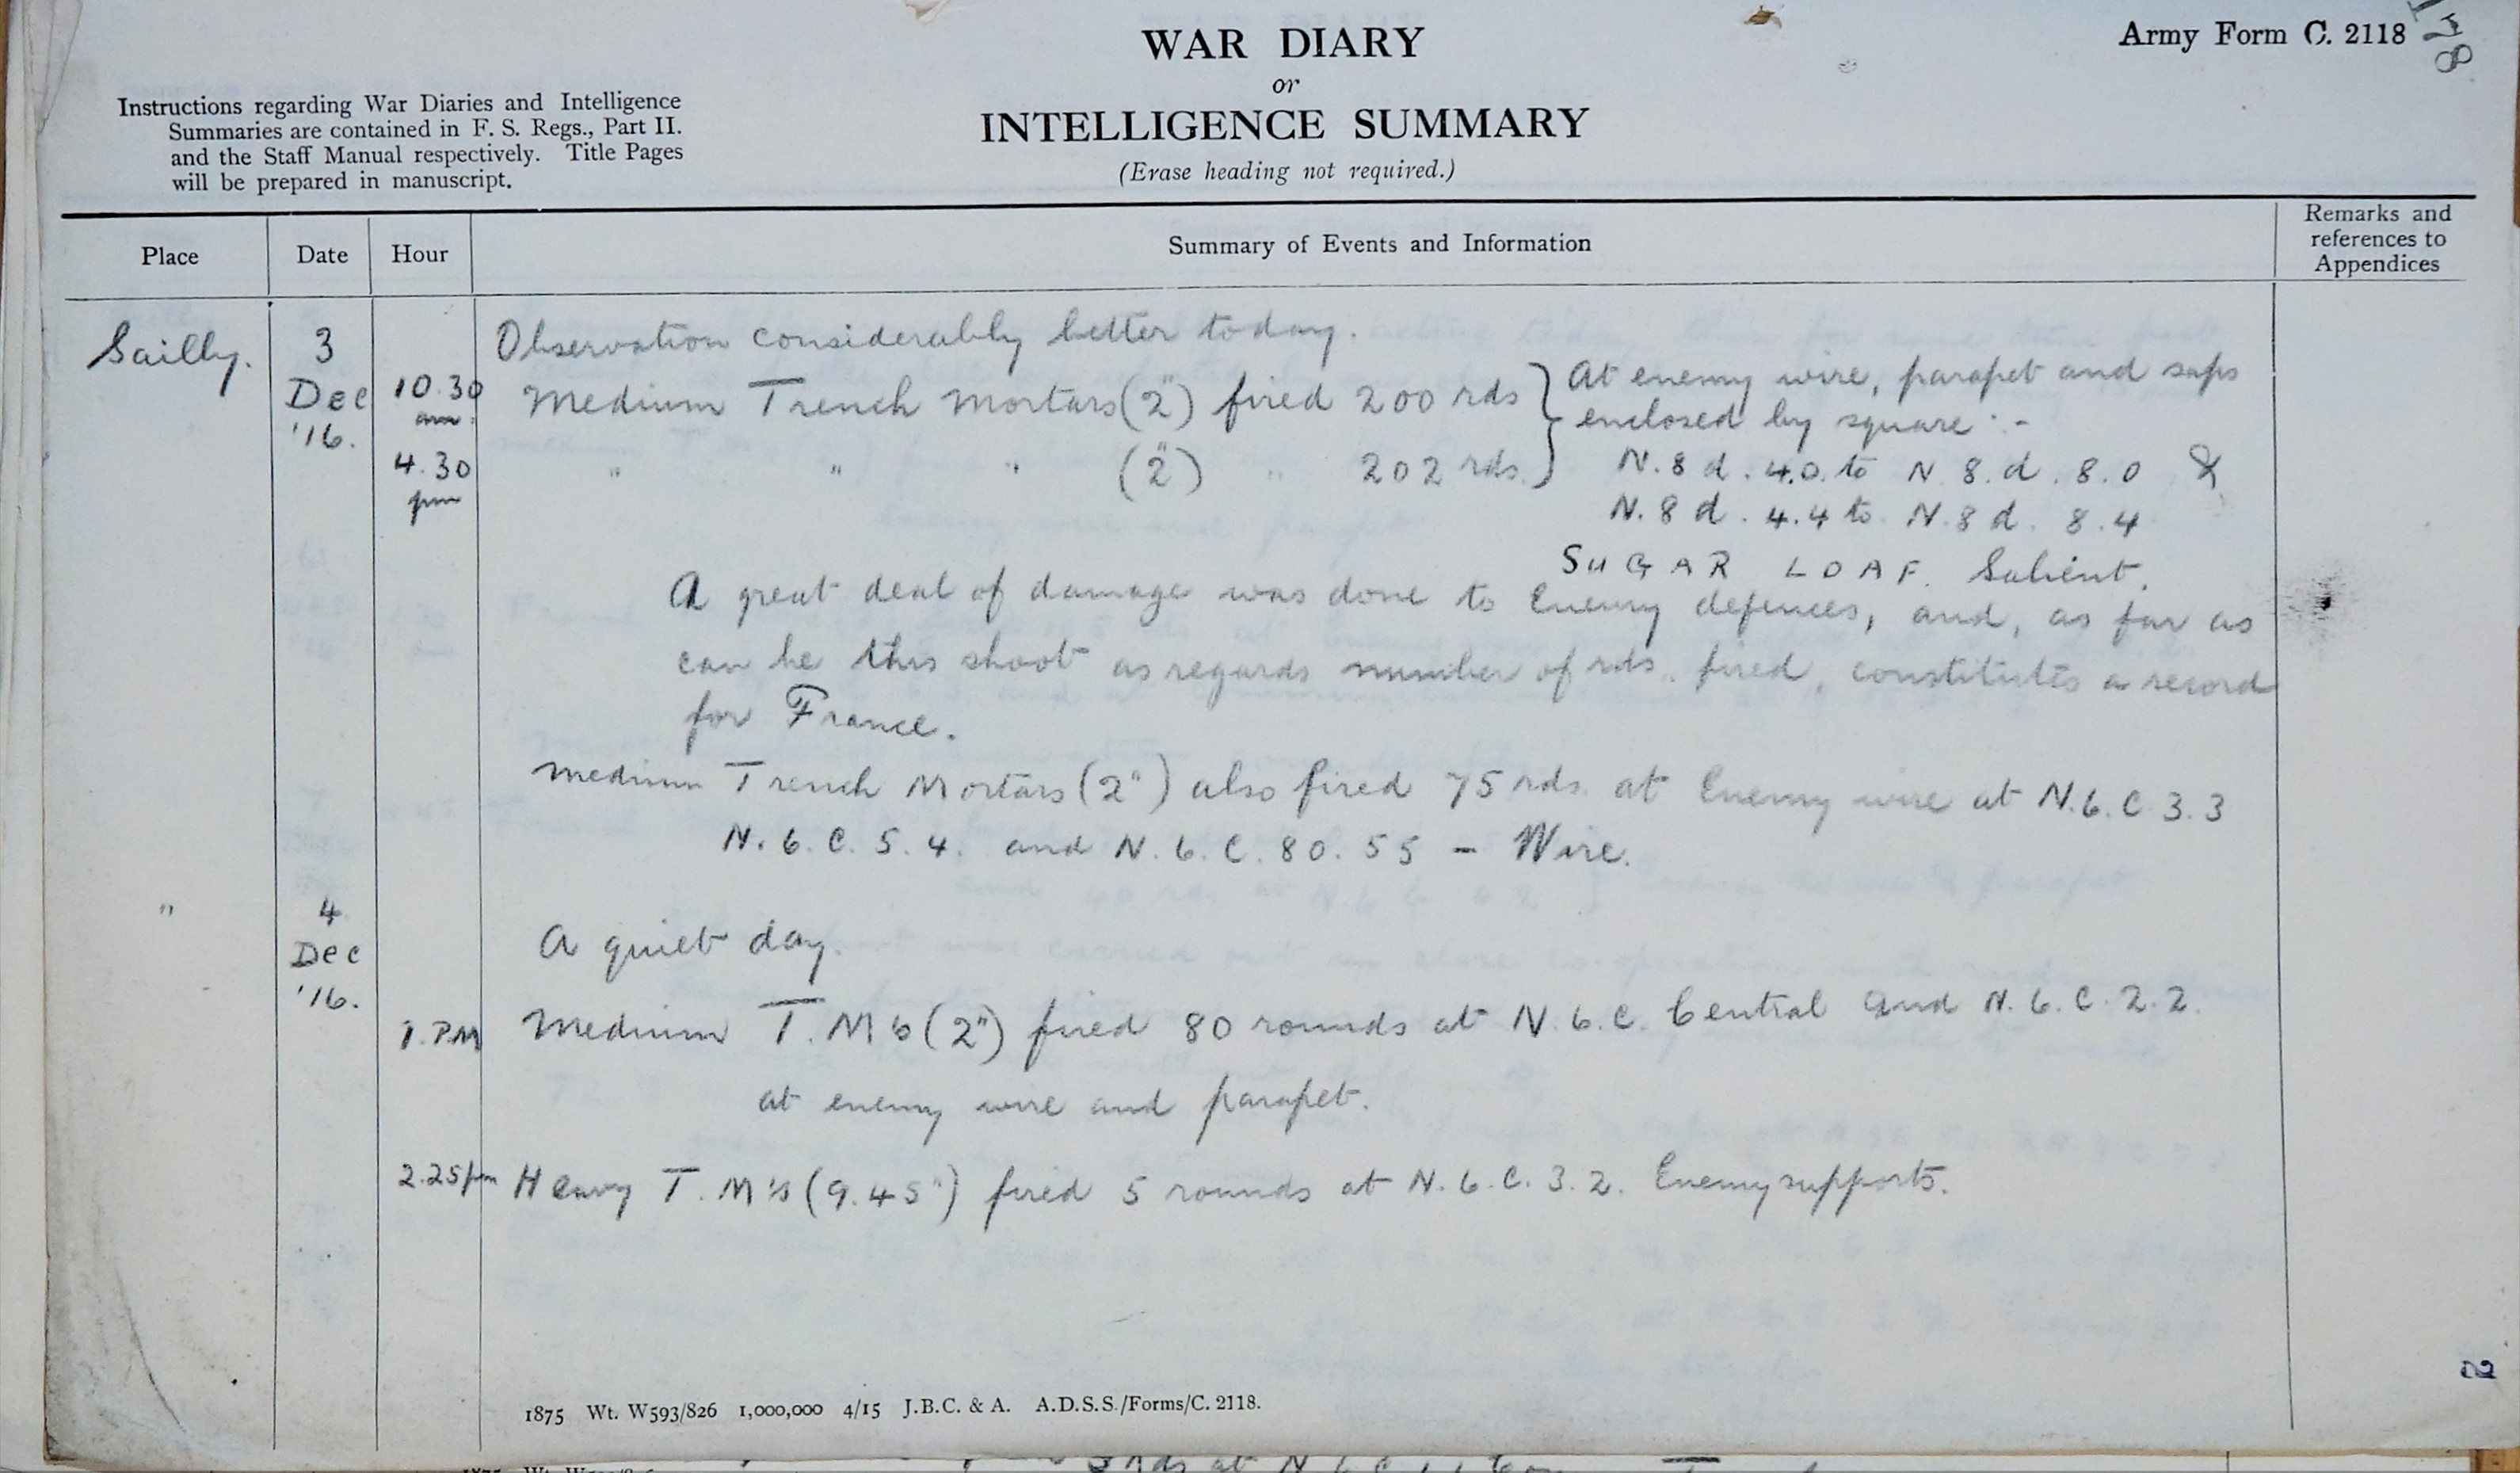 WAR DIARY
or
INTELLIGENCE SUMMARY
(Erase heading not required.)
Army Form C. 2118
178
Instructions regarding War Diaries and Intelligence
Summaries are contained in F. S. Regs., Part II.
and the Staff Manual respectively. Title Pages
will be prepared in manuscript.
Place Date Hour Summary of Events and Information Remarks and references to Appendices
Sailly. 3 Dec '16. Observation considerably better today.
10.30 am. Medium Trench Mortars (2") fired 200 rds } At enemy wire, parapet and saps
enclosed by square :-
4.30 pm " " " (2") " 202 rds. } N.8.d.4.0. to N.8.d.8.0 &
N.8d.4.4 to N.8d.8.4
SUGAR LOAF. Salient.
A great deal of damage was done to Enemy defences, and, as far as
can be this shoot as regards number of rds. fired, constitutes a record
for France.
Medium Trench Mortars (2") also fired 75 rds. at Enemy wire at N.6.C.3.3
N.6.C.5.4. and N.6.C.80.55 - Wire.
" 4 Dec '16. A quiet day.
1.PM Medium T.Ms (2") fired 80 rounds at N.6.C. Central and N.6.C.2.2.
at enemy wire and parapet.
2.25pm Heavy T.M's (9.45") fired 5 rounds at N.6.C.3.2. Enemy supports.
1875 Wt. W593/826 1,000,000 4/15 J.B.C. & A. A.D.S.S./Forms/C. 2118.